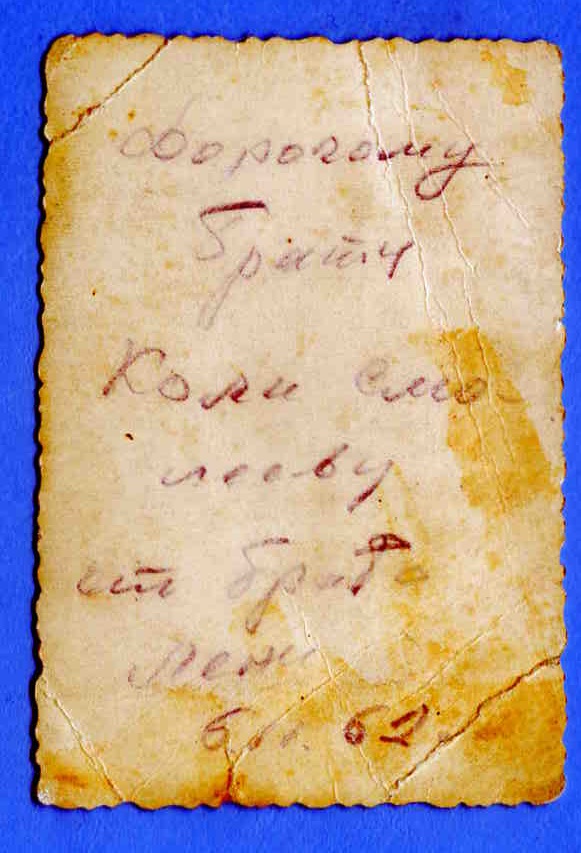 Дорогому
брату
Коли Смо-
лееву
от брата
Лени
6 11. 62